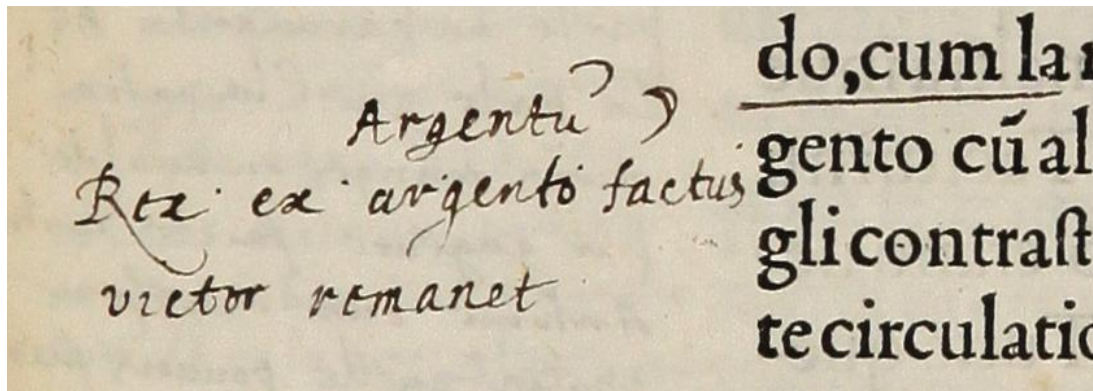 Argentū ☽
Rex ex argento factus
victor remanet
do,cum la
gento cū al
gli contraſt
te circulatio